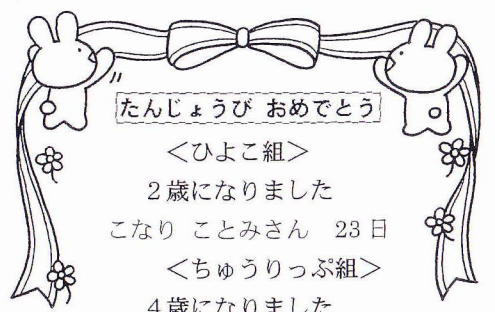 たんじょうび おめでとう
＜ひよこ組＞
２歳になりました
こなり ことみさん　23日
＜ちゅうりっぷ組＞
４歳になりました